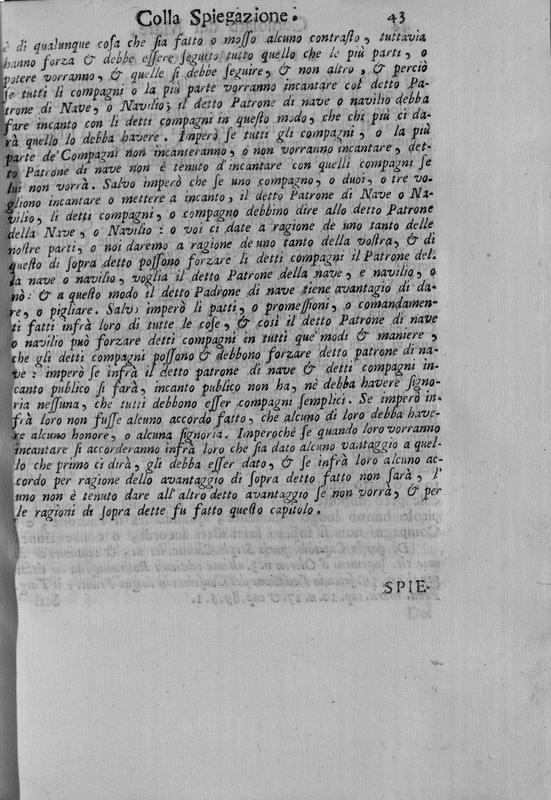 Colla Spiegazione. 43
è di qualunque cosa che sia fatto o mosso alcuno contrasto, tuttavia
hanno forza & debbe essere seguito tutto quello che le più parti, o
potere vorranno, & quelle si debbe seguire, & non altro, & perciò
se tutti li compagni o la più parte vorranno incantare col detto Pa-
trone di Nave, o Navilio; il detto Patrone di nave o navilio debba
fare incanto con li detti compagni in questo modo, che chi più ci da-
rà quello lo debba havere. Imperò se tutti gli compagni, o la più
parte de' Compagni non incanteranno, o non vorranno incantare, det-
to Patrone di nave non è tenuto d'incantare con quelli compagni se
lui non vorrà. Salvo imperò che se uno compagno, o duoi, o tre vo-
gliono incantare o mettere a incanto, il detto Patrone di Nave o Na-
vilio, li detti compagni, o compagno debbino dire allo detto Patrone
della Nave, o Navilio: o voi ci date a ragione de uno tanto delle
nostre parti, o noi daremo a ragione de uno tanto della vostra, & di
questo di sopra detto possono forzare li detti compagni il Patrone del-
la nave o navilio, voglia il detto Patrone della nave, e navilio, o
nò: & a questo modo il detto Padrone di nave tiene avantagio di da-
re, o pigliare. Salvo imperò li patti, o promessioni, o comandamen-
ti fatti infrà loro di tutte le cose, & così il detto Patrone di nave
o navilio può forzare detti compagni in tutti que' modi & maniere,
che gli detti compagni possono & debbono forzare detto patrone di na-
ve: imperò se infrà il detto patrone di nave & detti compagni in-
canto publico si farà, incanto publico non ha, nè debba havere signo-
ria nessuna, che tutti debbono esser compagni semplici. Se imperò in-
frà loro non fusse alcuno accordo fatto, che alcuno di loro debba have-
re alcuno honore, o alcuna signoria. Imperochè se quando loro vorranno
incantare si accorderanno infrà loro che sia dato alcuno vantaggio a quel-
lo che primo ci dirà, gli debba esser dato, & se infrà loro alcuno ac-
cordo per ragione dello avantaggio di sopra detto fatto non sarà, l'
uno non è tenuto dare all'altro detto avantaggio se non vorrà, & per
le ragioni di sopra dette fu fatto questo capitolo.
SPIE-